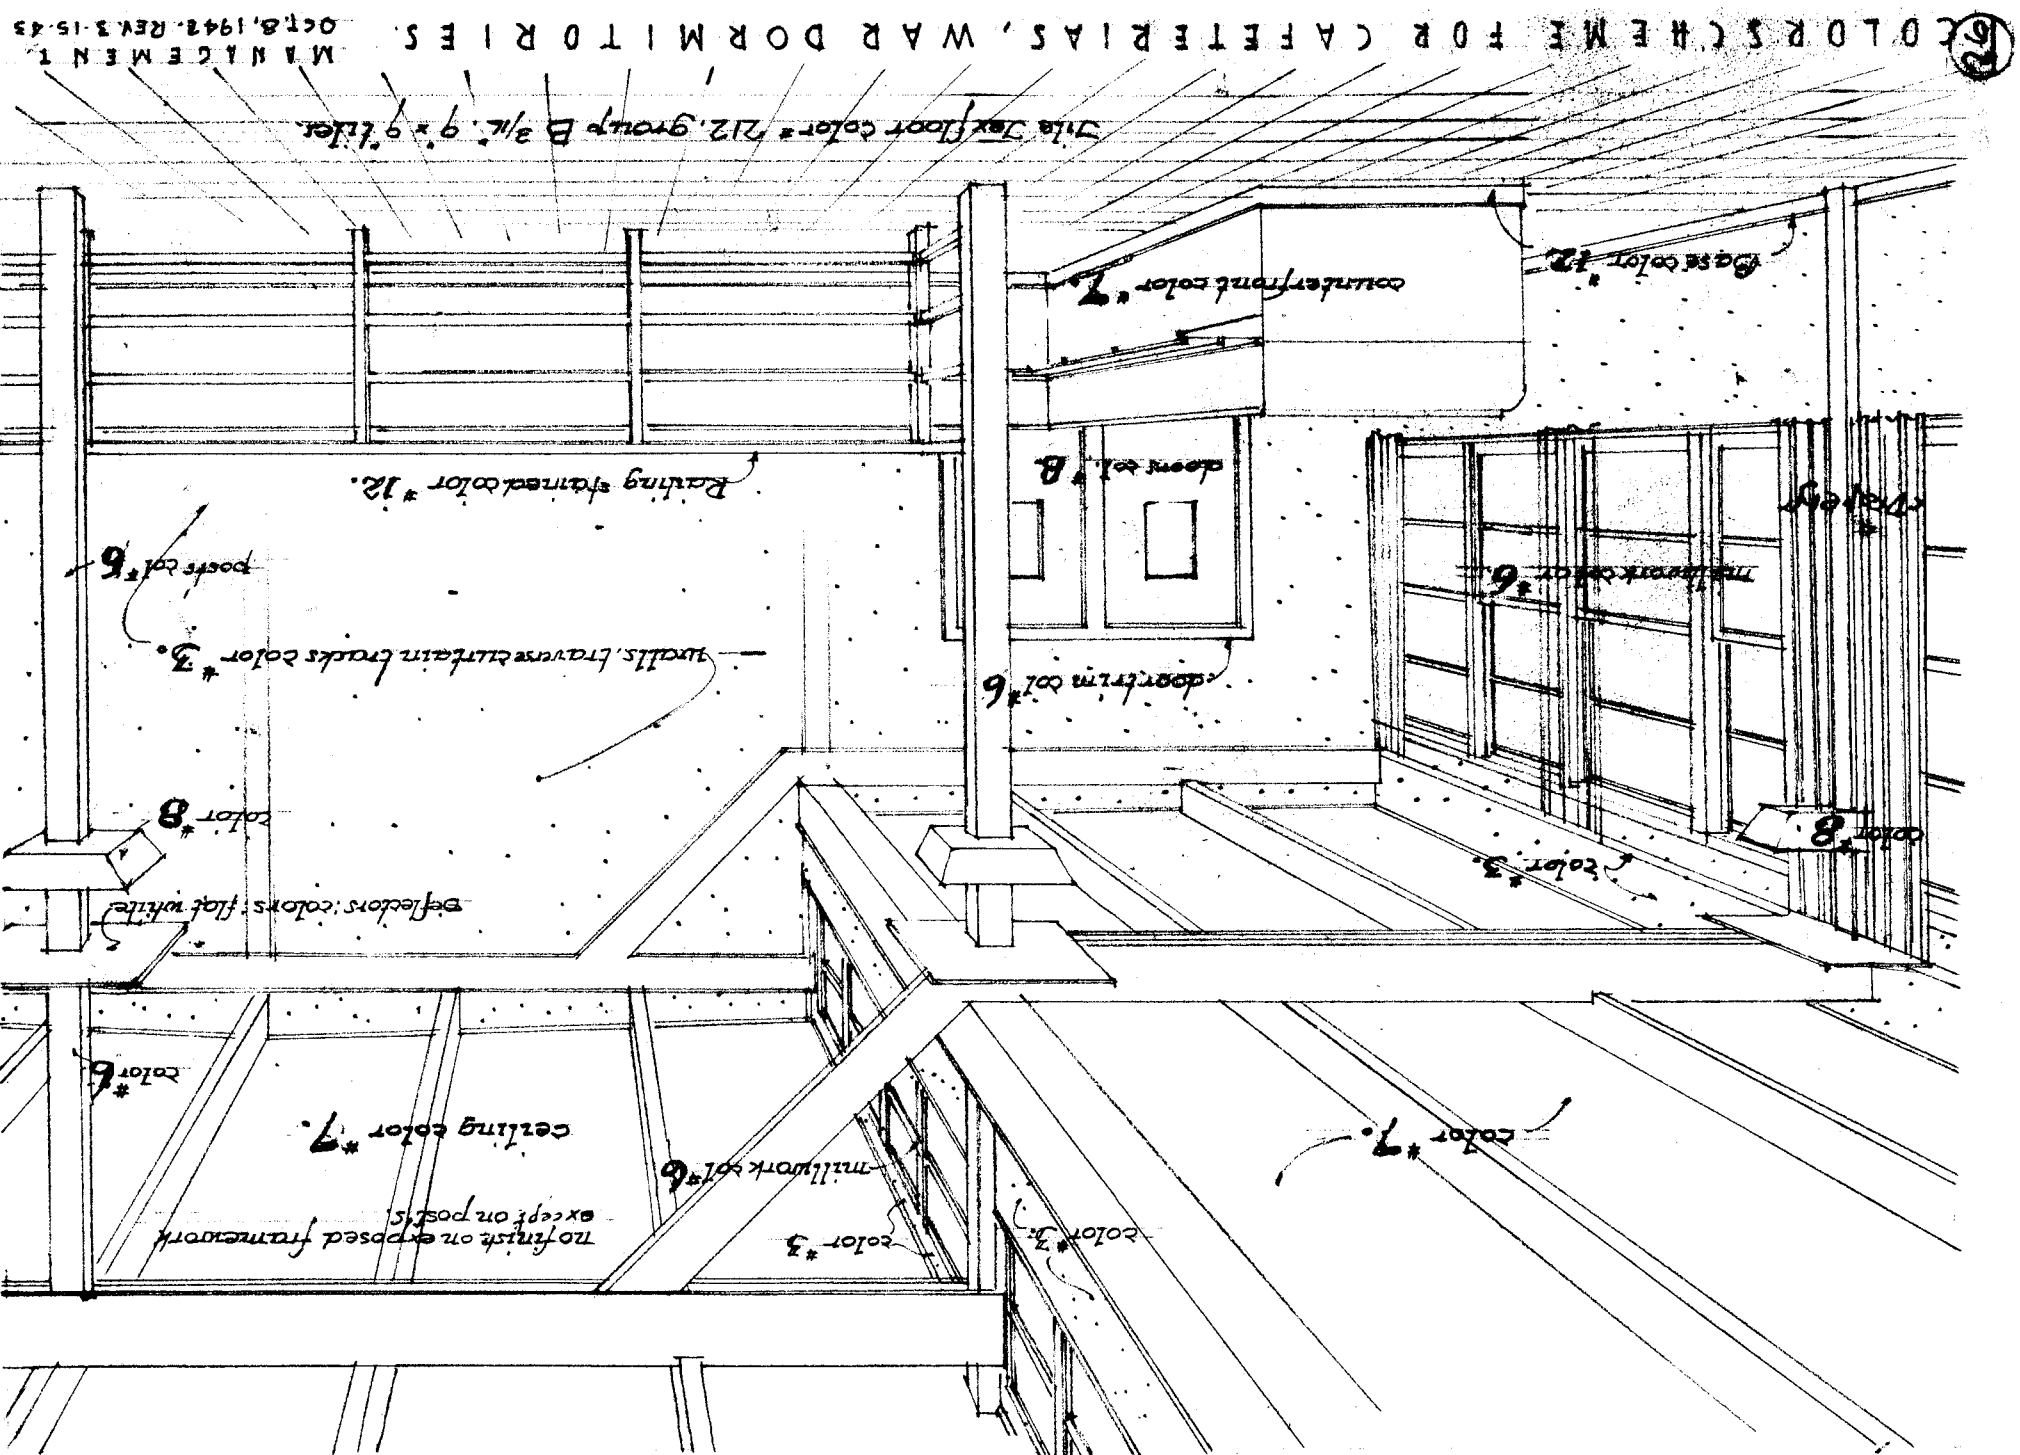 color #3.
color #3
no finish on exposed framework
except on posts.
millwork col #6
color #7.
ceiling color #7.
color #6
Deflectors: colors: flat white
color #3.
color #8
color #8
door trim col #6
walls, traverse curtain tracks color #3.
millwork color #6.
posts col #6
drapery
Railing stained color #12.
doors col. #8.
counterfront color #7.
Base color #12
Tile Texfloor color #212, group B 3/16". 9"x9" tiles.
COLORSCHEME FOR CAFETERIAS, WAR DORMITORIES.
MANAGEMENT.
OCT.8,1942. REV.3-15-43